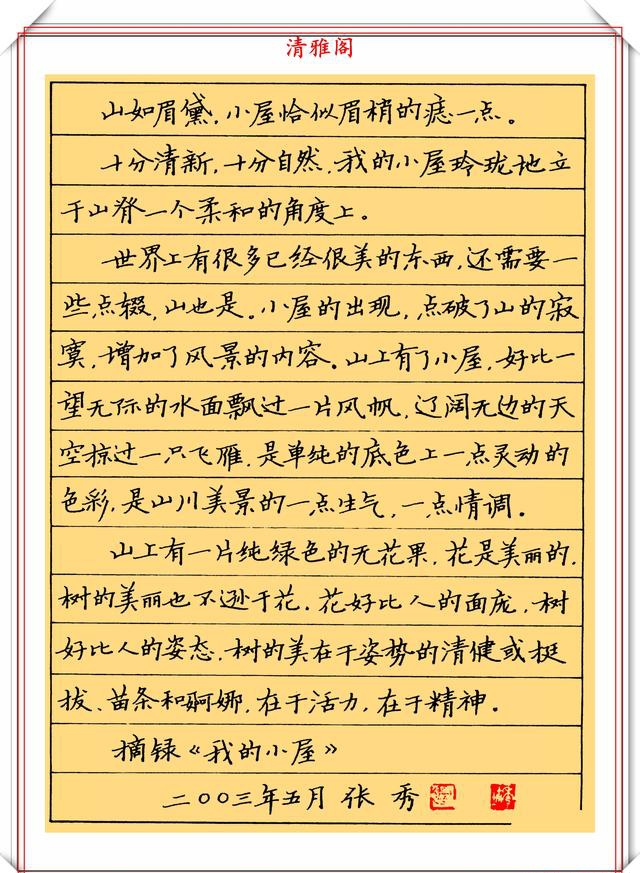 清雅阁
山如眉黛,小屋恰似眉梢的痣一点。
十分清新,十分自然,我的小屋玲珑地立
于山脊一个柔和的角度上。
世界上有很多已经很美的东西,还需要一
些点辍,山也是。小屋的出现,点破了山的寂
寞,增加了风景的内容。山上有了小屋,好比一
望无际的水面飘过一片风帆,辽阔无边的天
空掠过一只飞雁,是单纯的底色上一点灵动的
色彩,是山川美景的一点生气,一点情调。
山上有一片纯绿色的无花果,花是美丽的,
树的美丽也不逊于花。花好比人的面庞,树
好比人的姿态,树的美在于姿势的清健或挺
拔、苗条和婀娜,在于活力,在于精神。
摘録《我的小屋》
二〇〇三年五月 张 秀